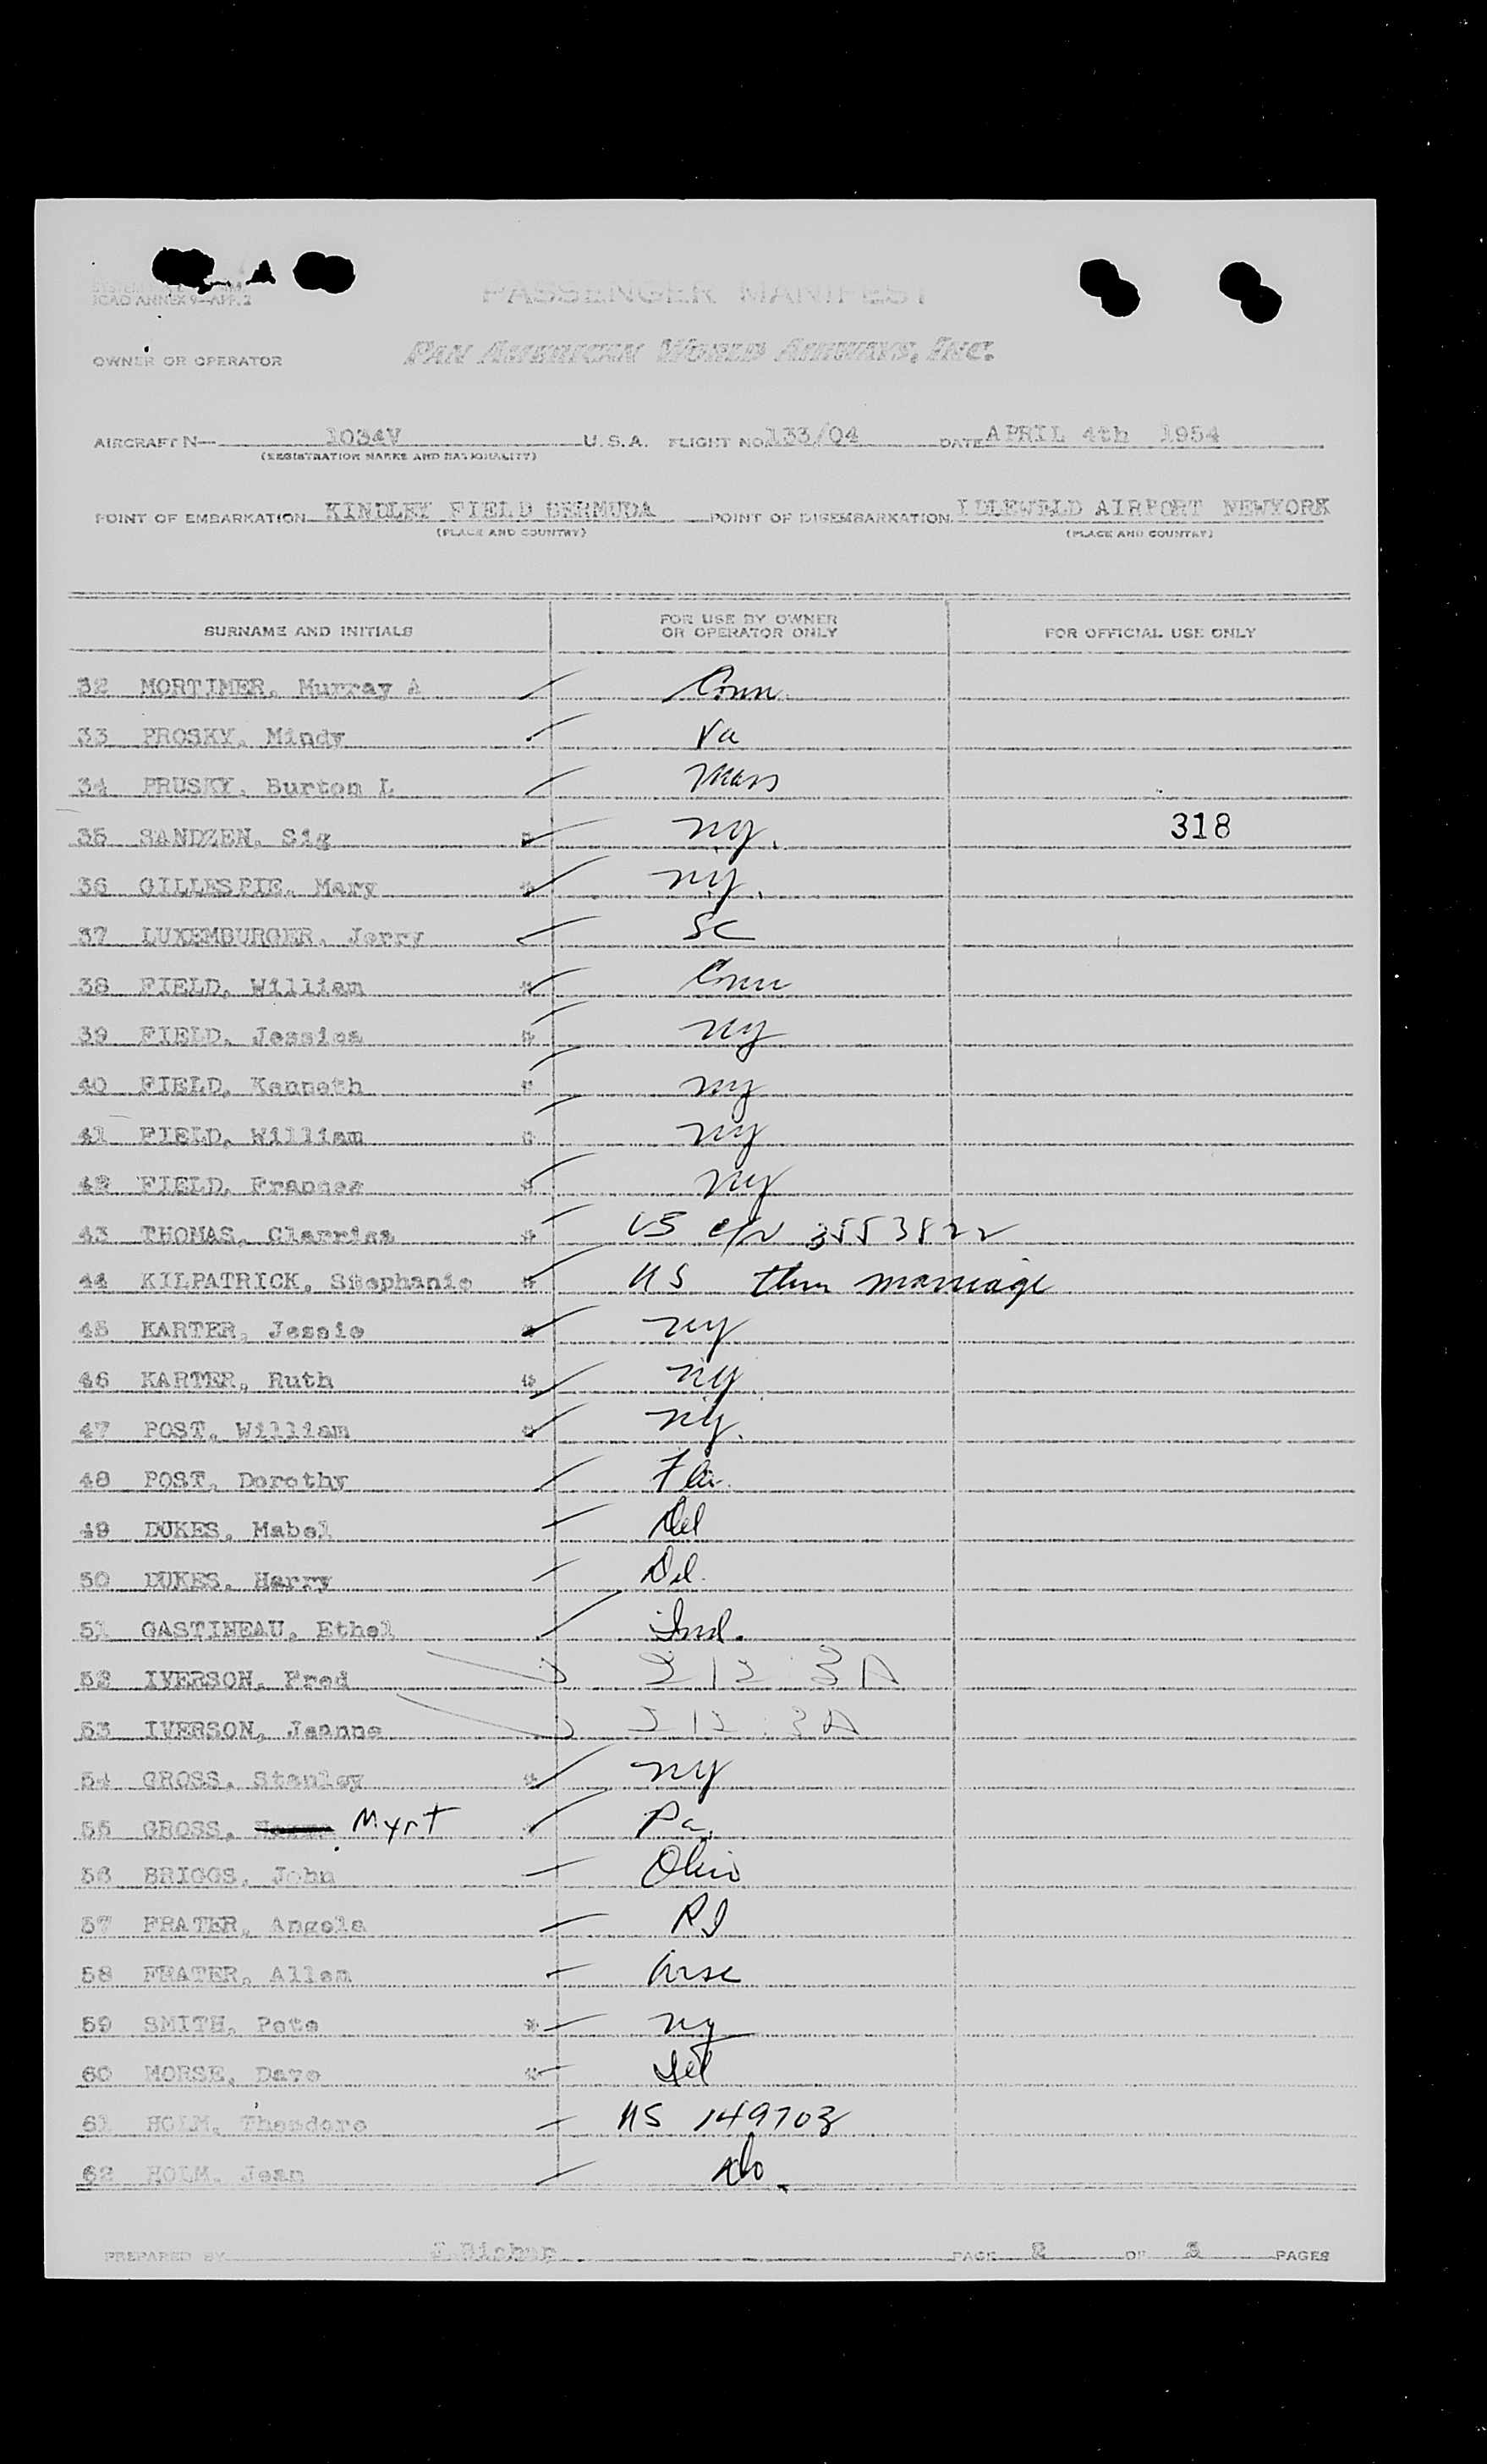 ICAO ANNEX 9—APP. 2
PASSENGER MANIFEST
OWNER OR OPERATOR PAN AMERICAN WORLD AIRWAYS, INC.
AIRCRAFT N— 1034V U.S.A. FLIGHT NO. 133/04 DATE APRIL 4th 1954
(REGISTRATION MARKS AND NATIONALITY)
POINT OF EMBARKATION KINDLEY FIELD BERMUDA POINT OF DISEMBARKATION IDLEWELD AIRPORT NEWYORK
(PLACE AND COUNTRY) (PLACE AND COUNTRY)
SURNAME AND INITIALS FOR USE BY OWNER OR OPERATOR ONLY FOR OFFICIAL USE ONLY
32 MORTIMER, Murray A Conn.
33 PROSKY, Mindy Va
34 PRUSKY, Burton L Mass
35 SANDZEN, Sig * NY. 318
36 GILLESPIE, Mary * NY.
37 LUXEMBURGER, Jerry SC
38 FIELD, William * Conn
39 FIELD, Jessica * NY
40 FIELD, Kenneth * NY
41 FIELD, William * NY
42 FIELD, Frances * NY
43 THOMAS, Clarrisa * US C/N 3553822
44 KILPATRICK, Stephanie * US thru marriage
45 KARTER, Jessie * NY
46 KARTER, Ruth * NY
47 POST, William * NY.
48 POST, Dorothy Fla.
49 DUKES, Mabel Del
50 DUKES, Harry Del.
51 GASTINEAU, Ethel Ind.
52 IVERSON, Fred 212 3A
53 IVERSON, Jeanne 212 3A
54 GROSS, Stanley * NY
55 GROSS, Myrt * Pa.
56 BRIGGS, John Ohio
57 FRATER, Angela RI
58 FRATER, Allen Wisc
59 SMITH, Pete * NY
60 MORSE, Dave * Del
61 HOLM, Theodore US 149703
62 HOLM, Jean do.
PREPARED BY Bishop PAGE 2 OF 3 PAGES